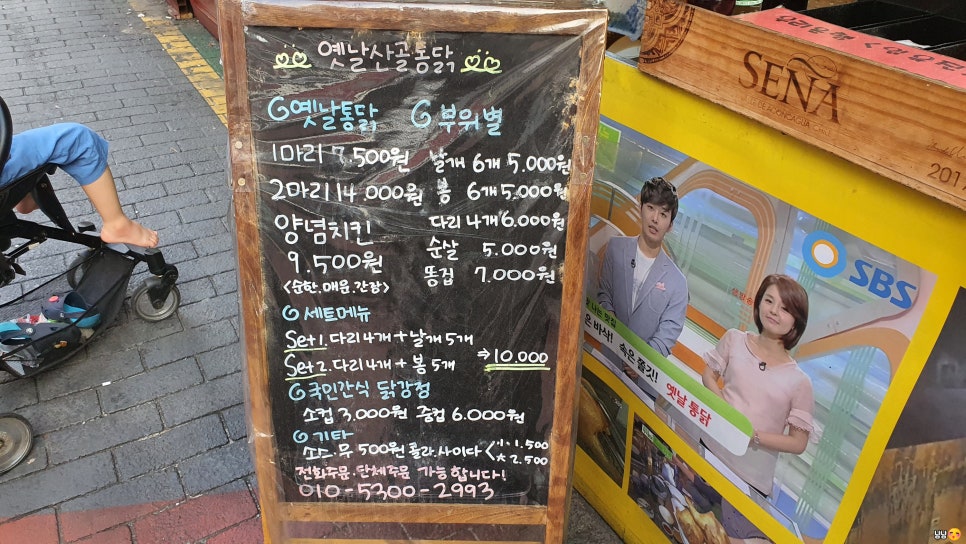 옛날산골통닭
옛날통닭
1마리 7.500원
2마리 14.000원
양념치킨
9.500원
<순한.매운.간장>
부위별
날개 6개 5.000원
봉 6개 5.000원
다리 4개 6.000원
순살 5.000원
똥집 7.000원
세트메뉴
Set 1. 다리 4개 + 날개 5개
Set 2. 다리 4개 + 봉 5개
⇒ 10.000
국민간식 닭강정
소컵 3.000원 중컵 6.000원
기타
소스.무 500원 콜라.사이다 < 小 1.500
大 2.500
전화주문.단체주문 가능합니다!
010-5300-2993
SENA
SBS
은 바삭! 속은 쫄깃! 옛날 통닭
냠냠